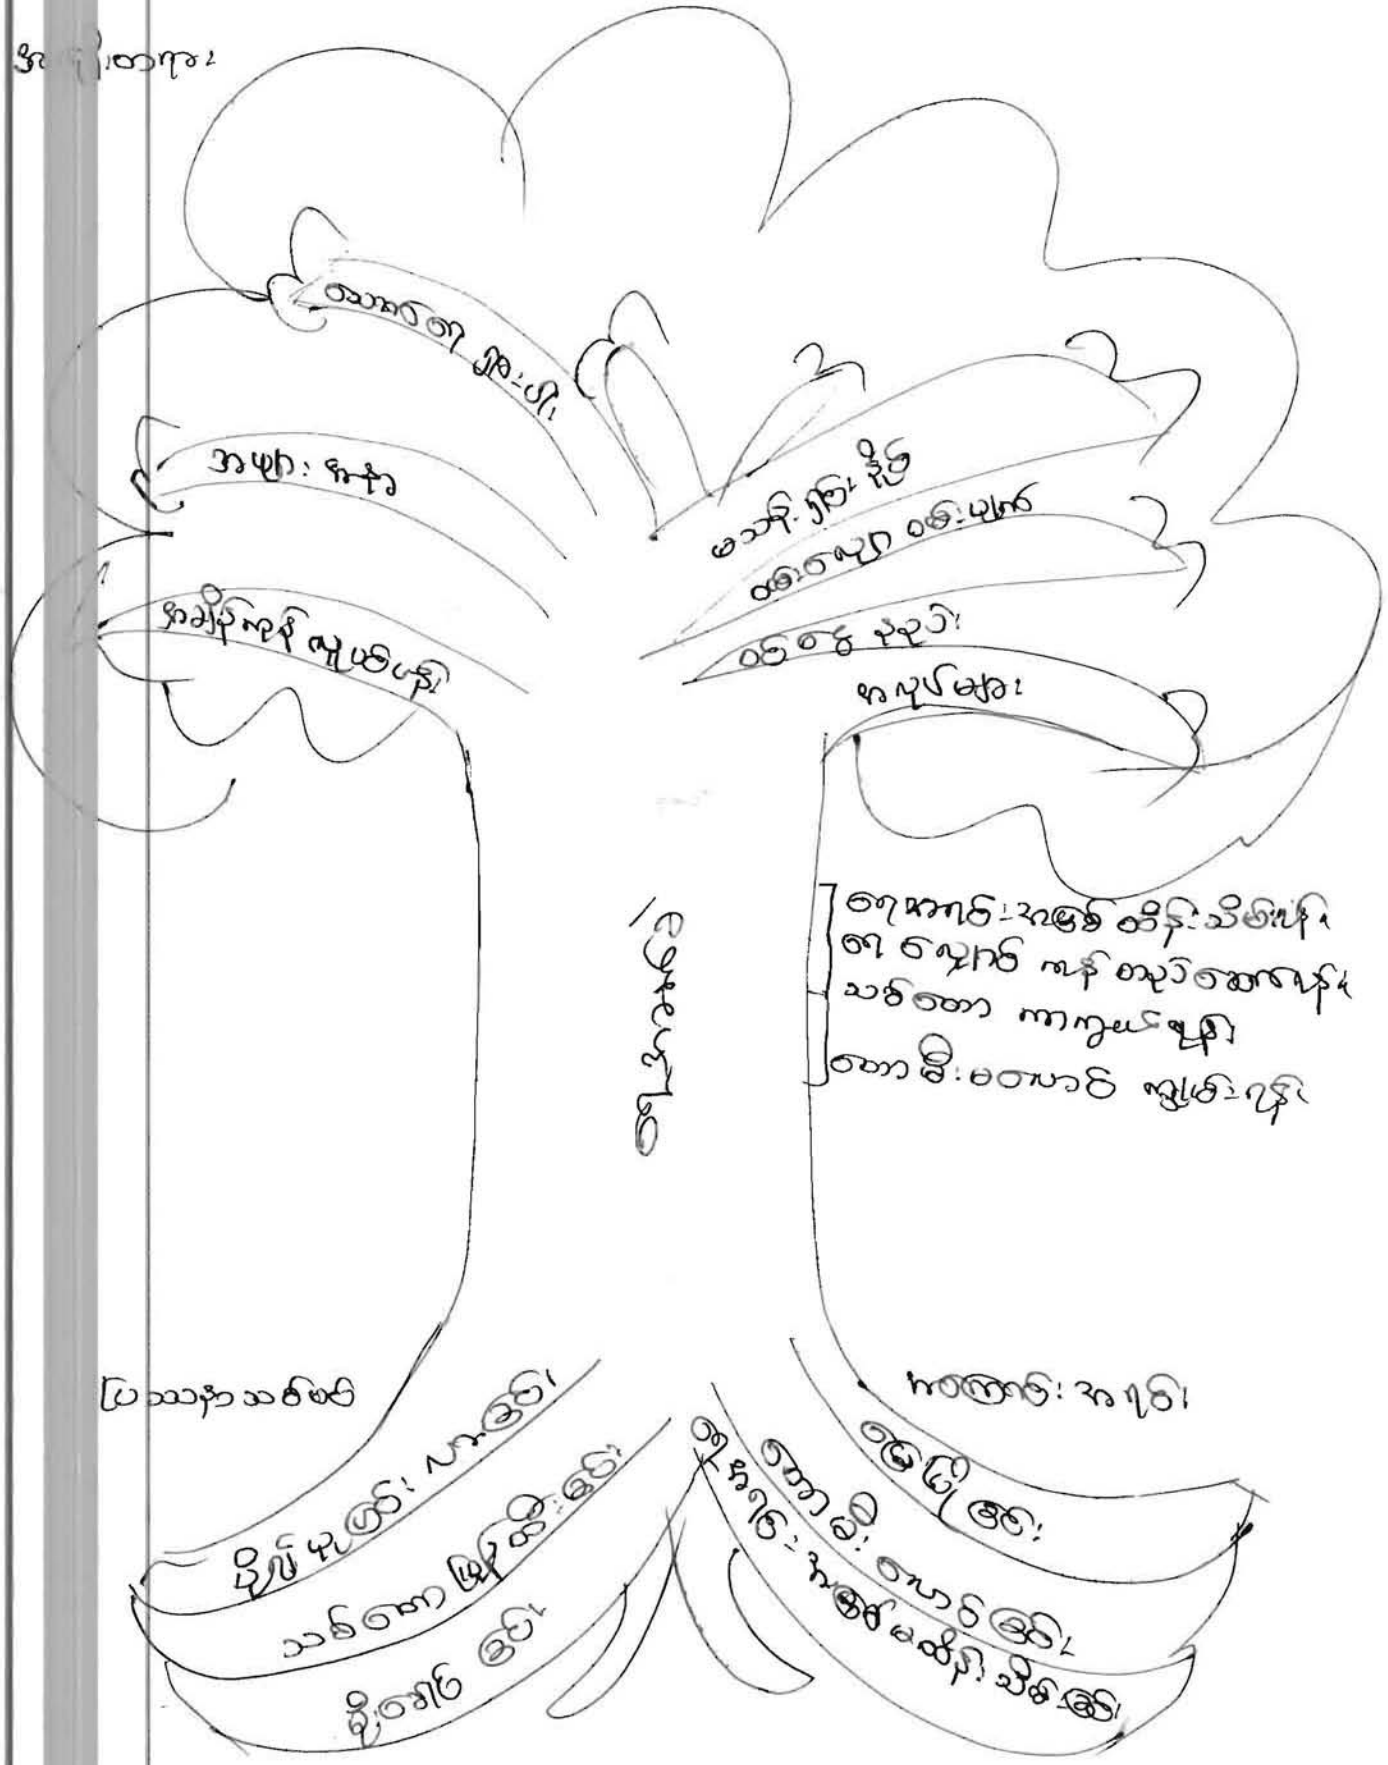 အကျိုးတရား
သောက်ရေ ရှားပါး
အဖျား အနာ
အချိန်ကုန် လူပင်ပန်း
မသန့်ရှင်း
ဝမ်းလျှော ဝမ်းပျက်
ဝင်ငွေ နည်းပါး
အလုပ်များ
ရေအရင်းအမြစ် ထိန်းသိမ်းရန်
ရေလှောင် ကန် တည်ဆောက်ရန်
သစ်တော ကာကွယ်ရန်
တောမီးမလောင်
ရေရှားပါး
ပြဿနာသစ်ပင်
အကြောင်းအရင်း
မိုဃ်း လာခြင်း
သစ်တော ပြုန်းတီးခြင်း
မိုးခေါင်ခြင်း
မြေပြိုခြင်း
တောမီး လောင်ခြင်း
ရေအရင်းအမြစ် မထိန်းသိမ်းခြင်း